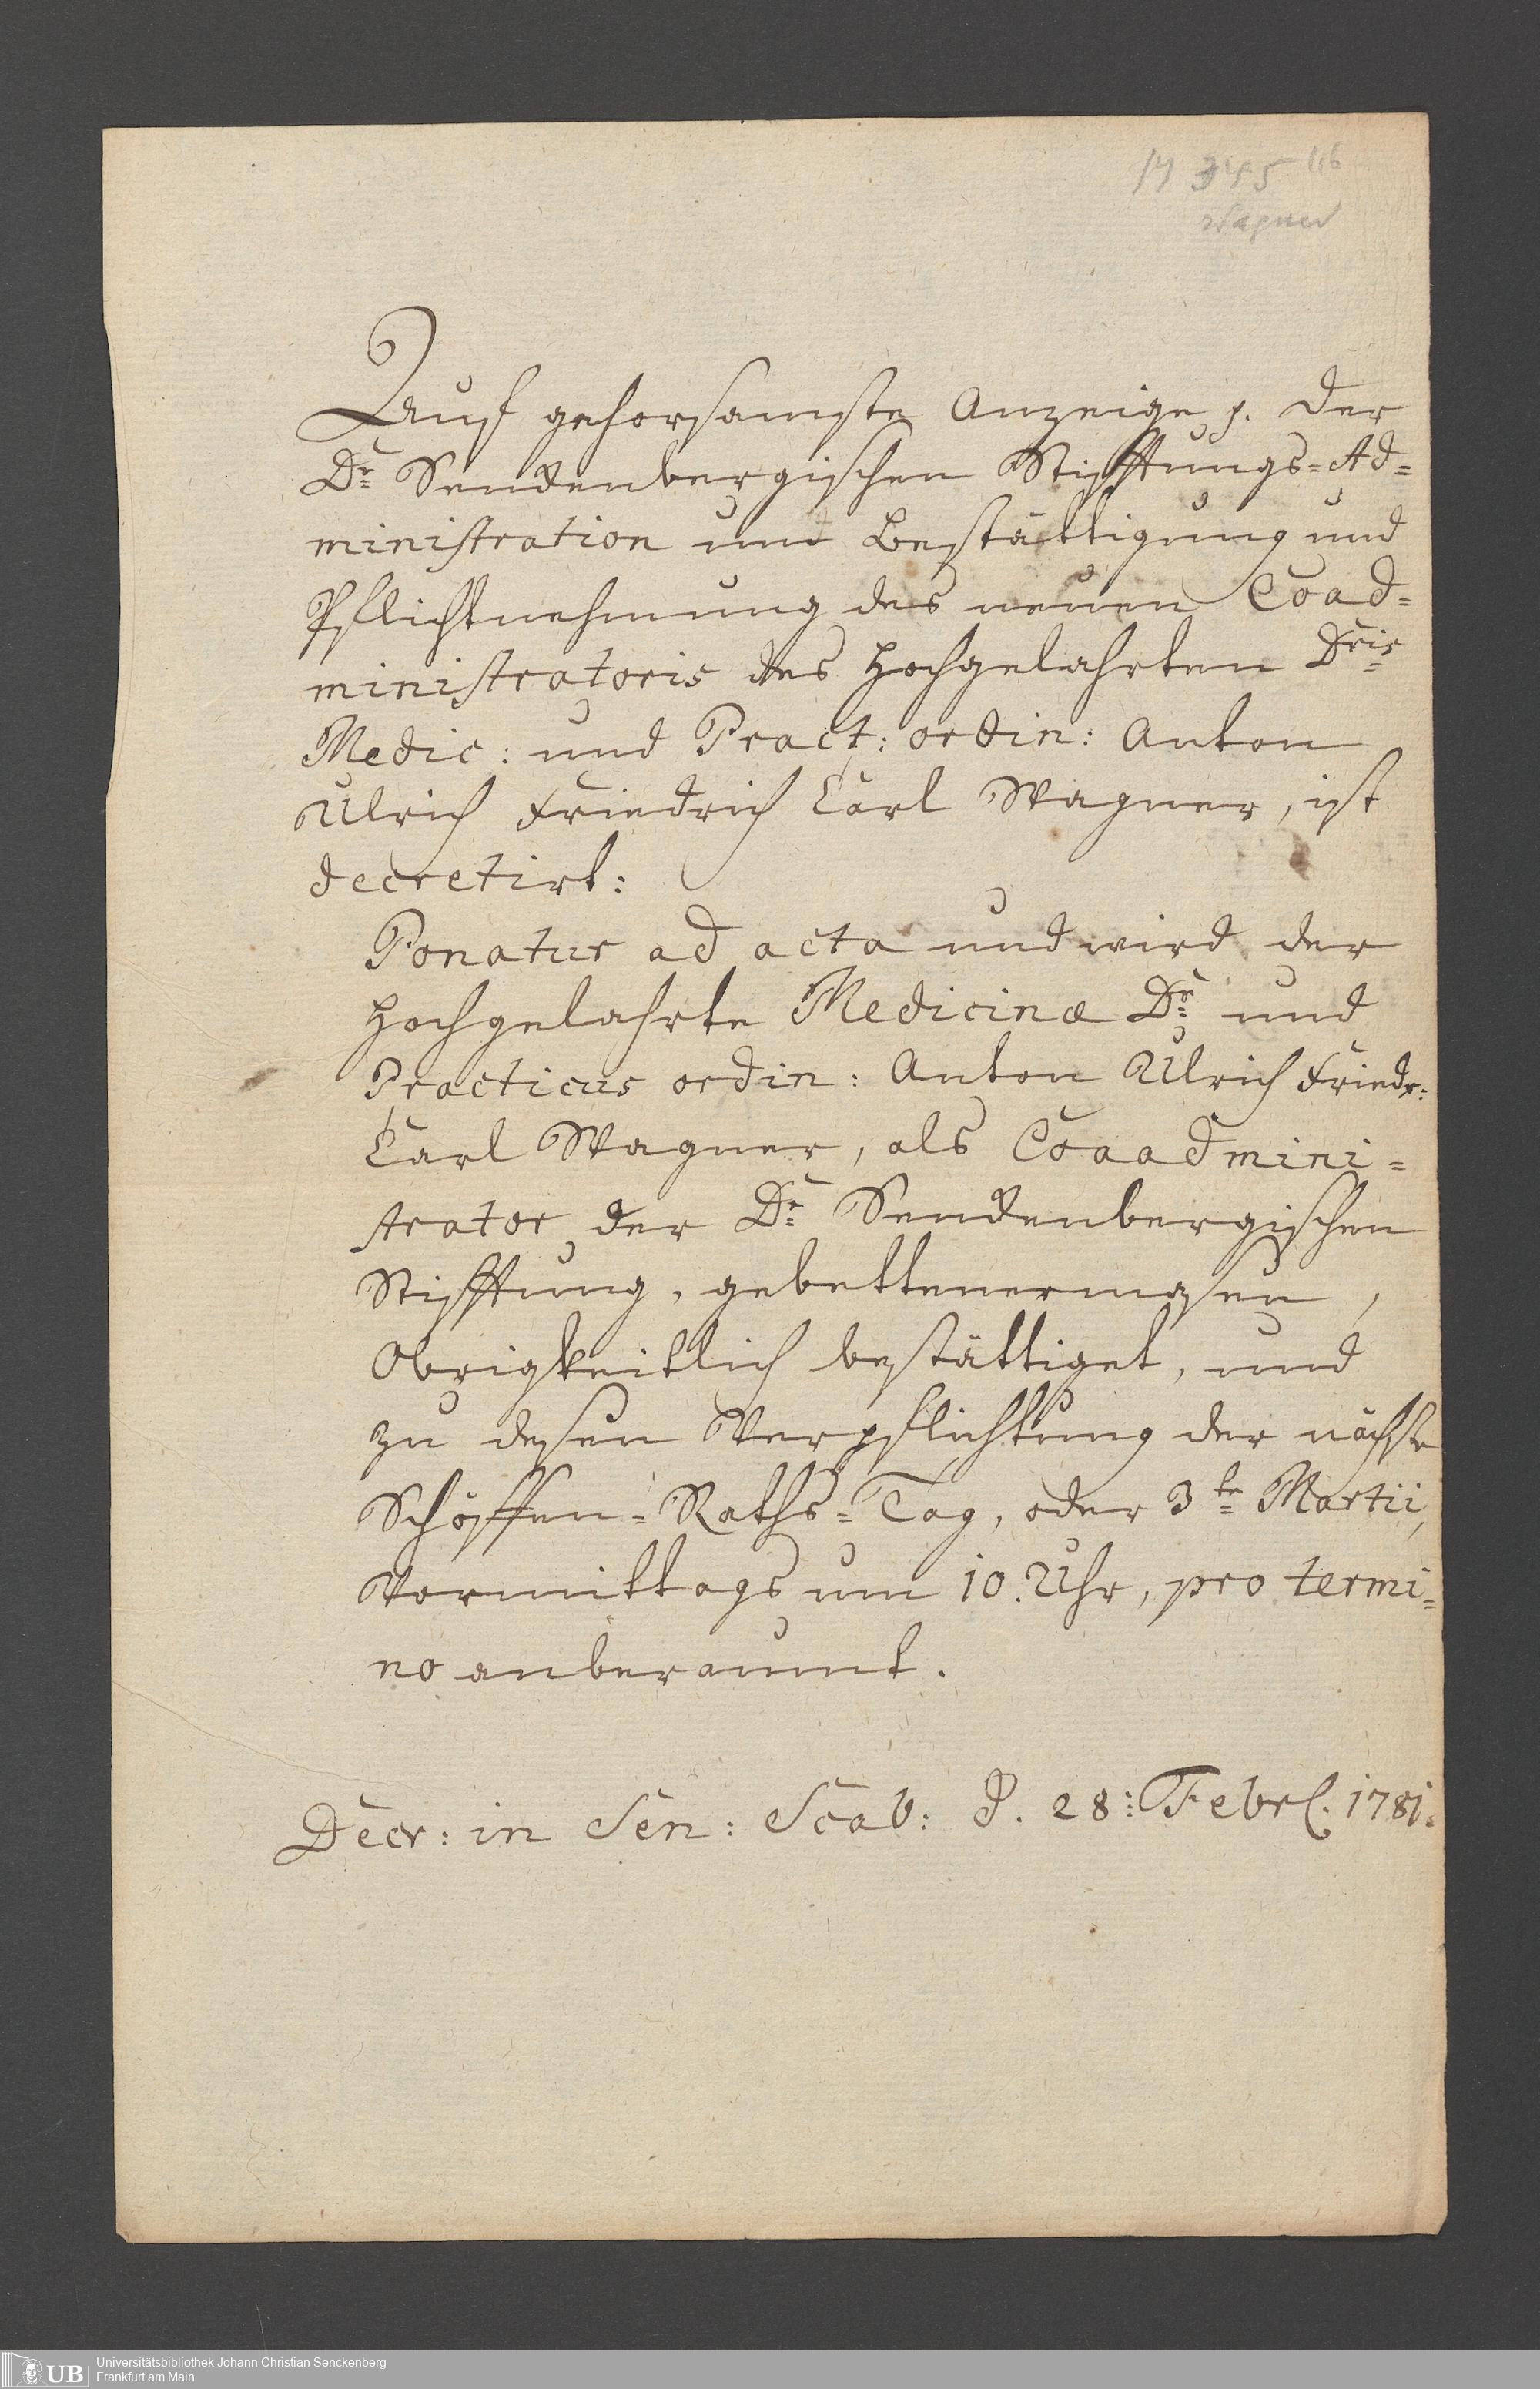 Wagner
Auf gehorsamste Anzeige p. der
Dr Senckenbergischen Stifftungs-Ad-
ministration um Bestättigung und
Pflichtnehmung des neuen Coad-
ministratoris des hochgelahrten Dris
Medic: und Pract: ordin: Anton
Ulrich Friedrich Carl Wagner, ist
decretirt:
Ponatur ad acta und wird der
hochgelahrte Medicinæ Dr und
Practicus ordin: Anton Ulrich Friedr:
Carl Wagner, als Coaadmini-
strator der Dr Senckenbergischen
Stifftung, gebettenermasen,
Obrigkeitlich bestättiget, und
zu desen Verpflichtung der nächste
Schöffen-Raths-Tag, oder 3te Martii,
Vormittags um 10. Uhr, pro termi-
no anberaumt.
Decr: in Sen: Scab: d. 28: Febrl. 1781.
UB
Universitätsbibliothek Johann Christian Senckenberg
Frankfurt am Main